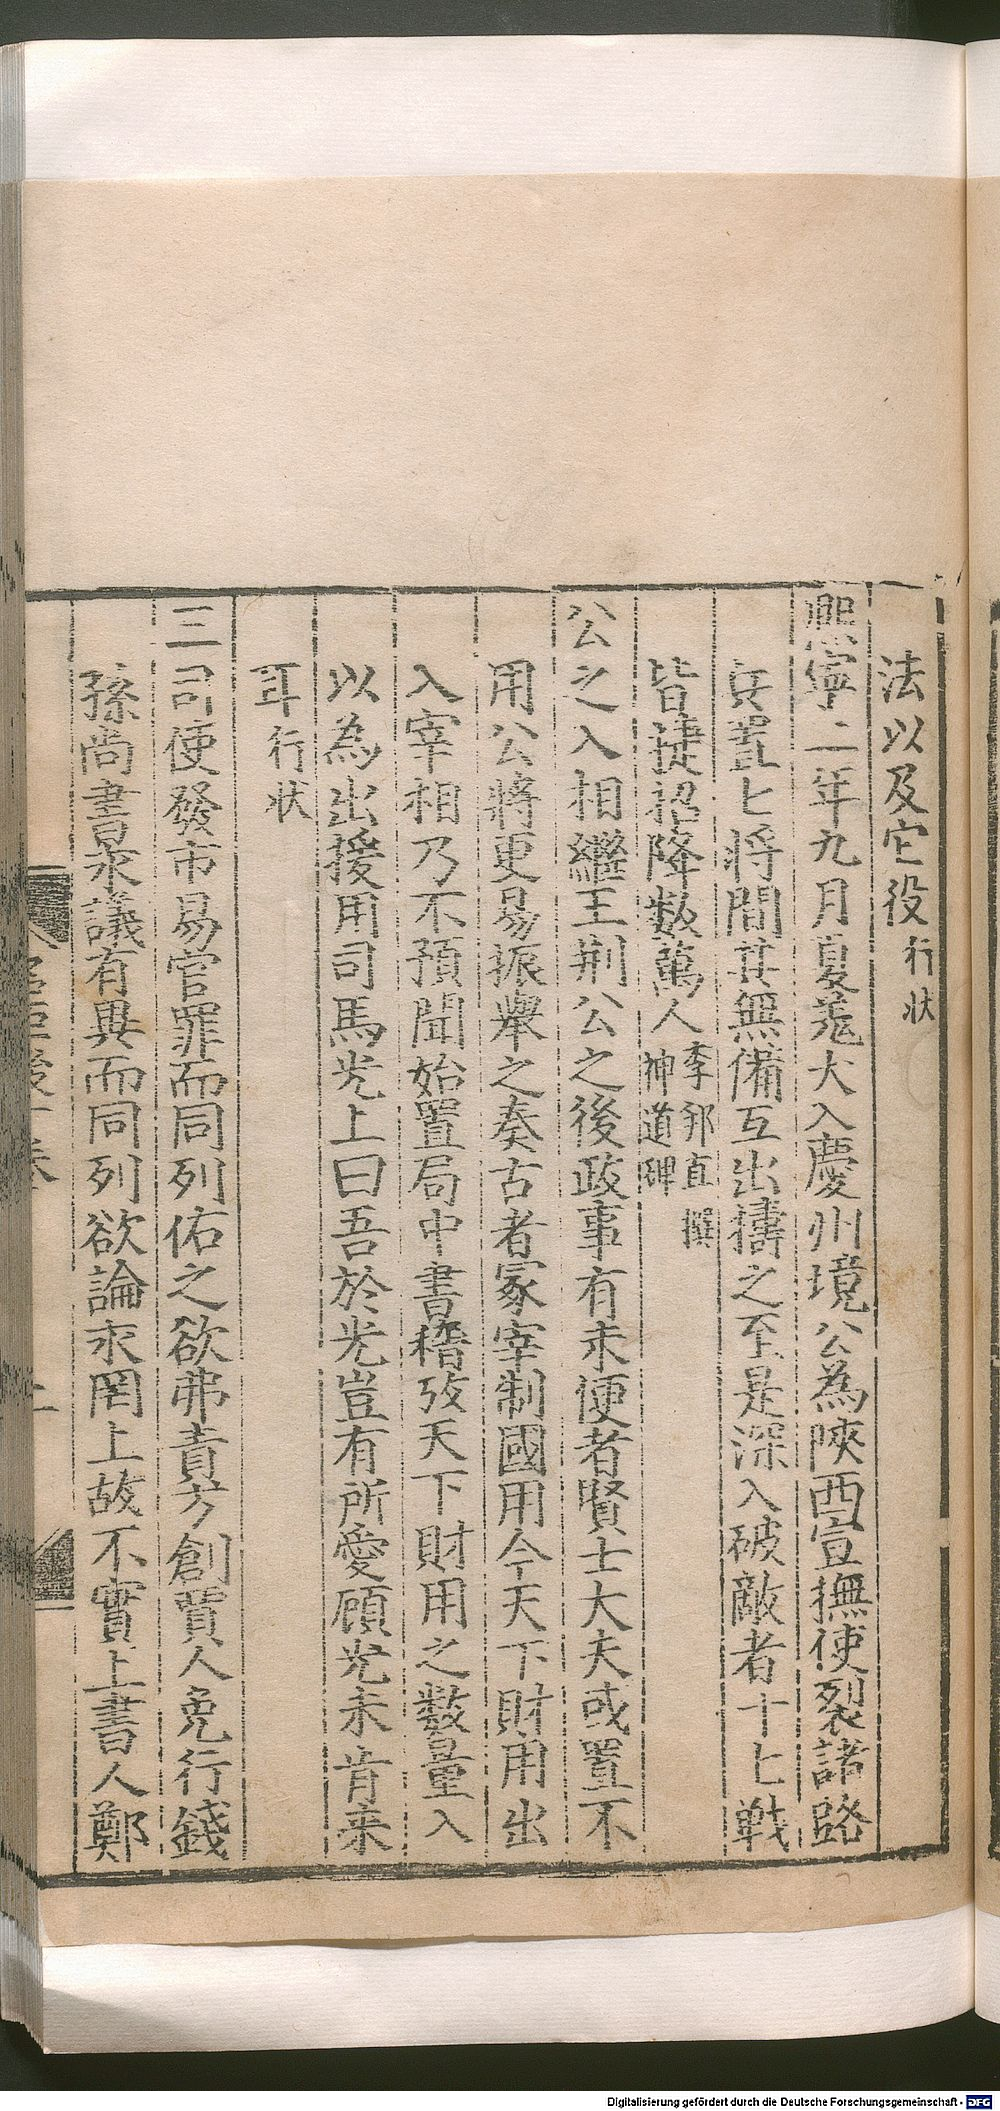 法以及它役行狀
熙寧二年九月夏羌犬入慶州境公為陝西宣撫使裂諸路
兵置七将間其無備互出擣之至是深入破敵者十七戰
皆捷招降数萬人李邦直撰神道碑
公之入相繼王荆公之後政事有未便者賢士大夫或置不
用公將更易振舉之奏古者冢宰制國用今天下財用出
入宰相乃不預聞始置局中書稽攷天下財用之数量入
以為出援用司馬光上曰吾於光豈有所愛顧光未肯来
耳行狀
三司使發市易官罪而同列佑之欲弗責方創賈人免行錢
孫尚書永議有異而同列欲論永罔上故不實上書人鄭
Digitalisierung gefördert durch die Deutsche Forschungsgemeinschaft - DFG